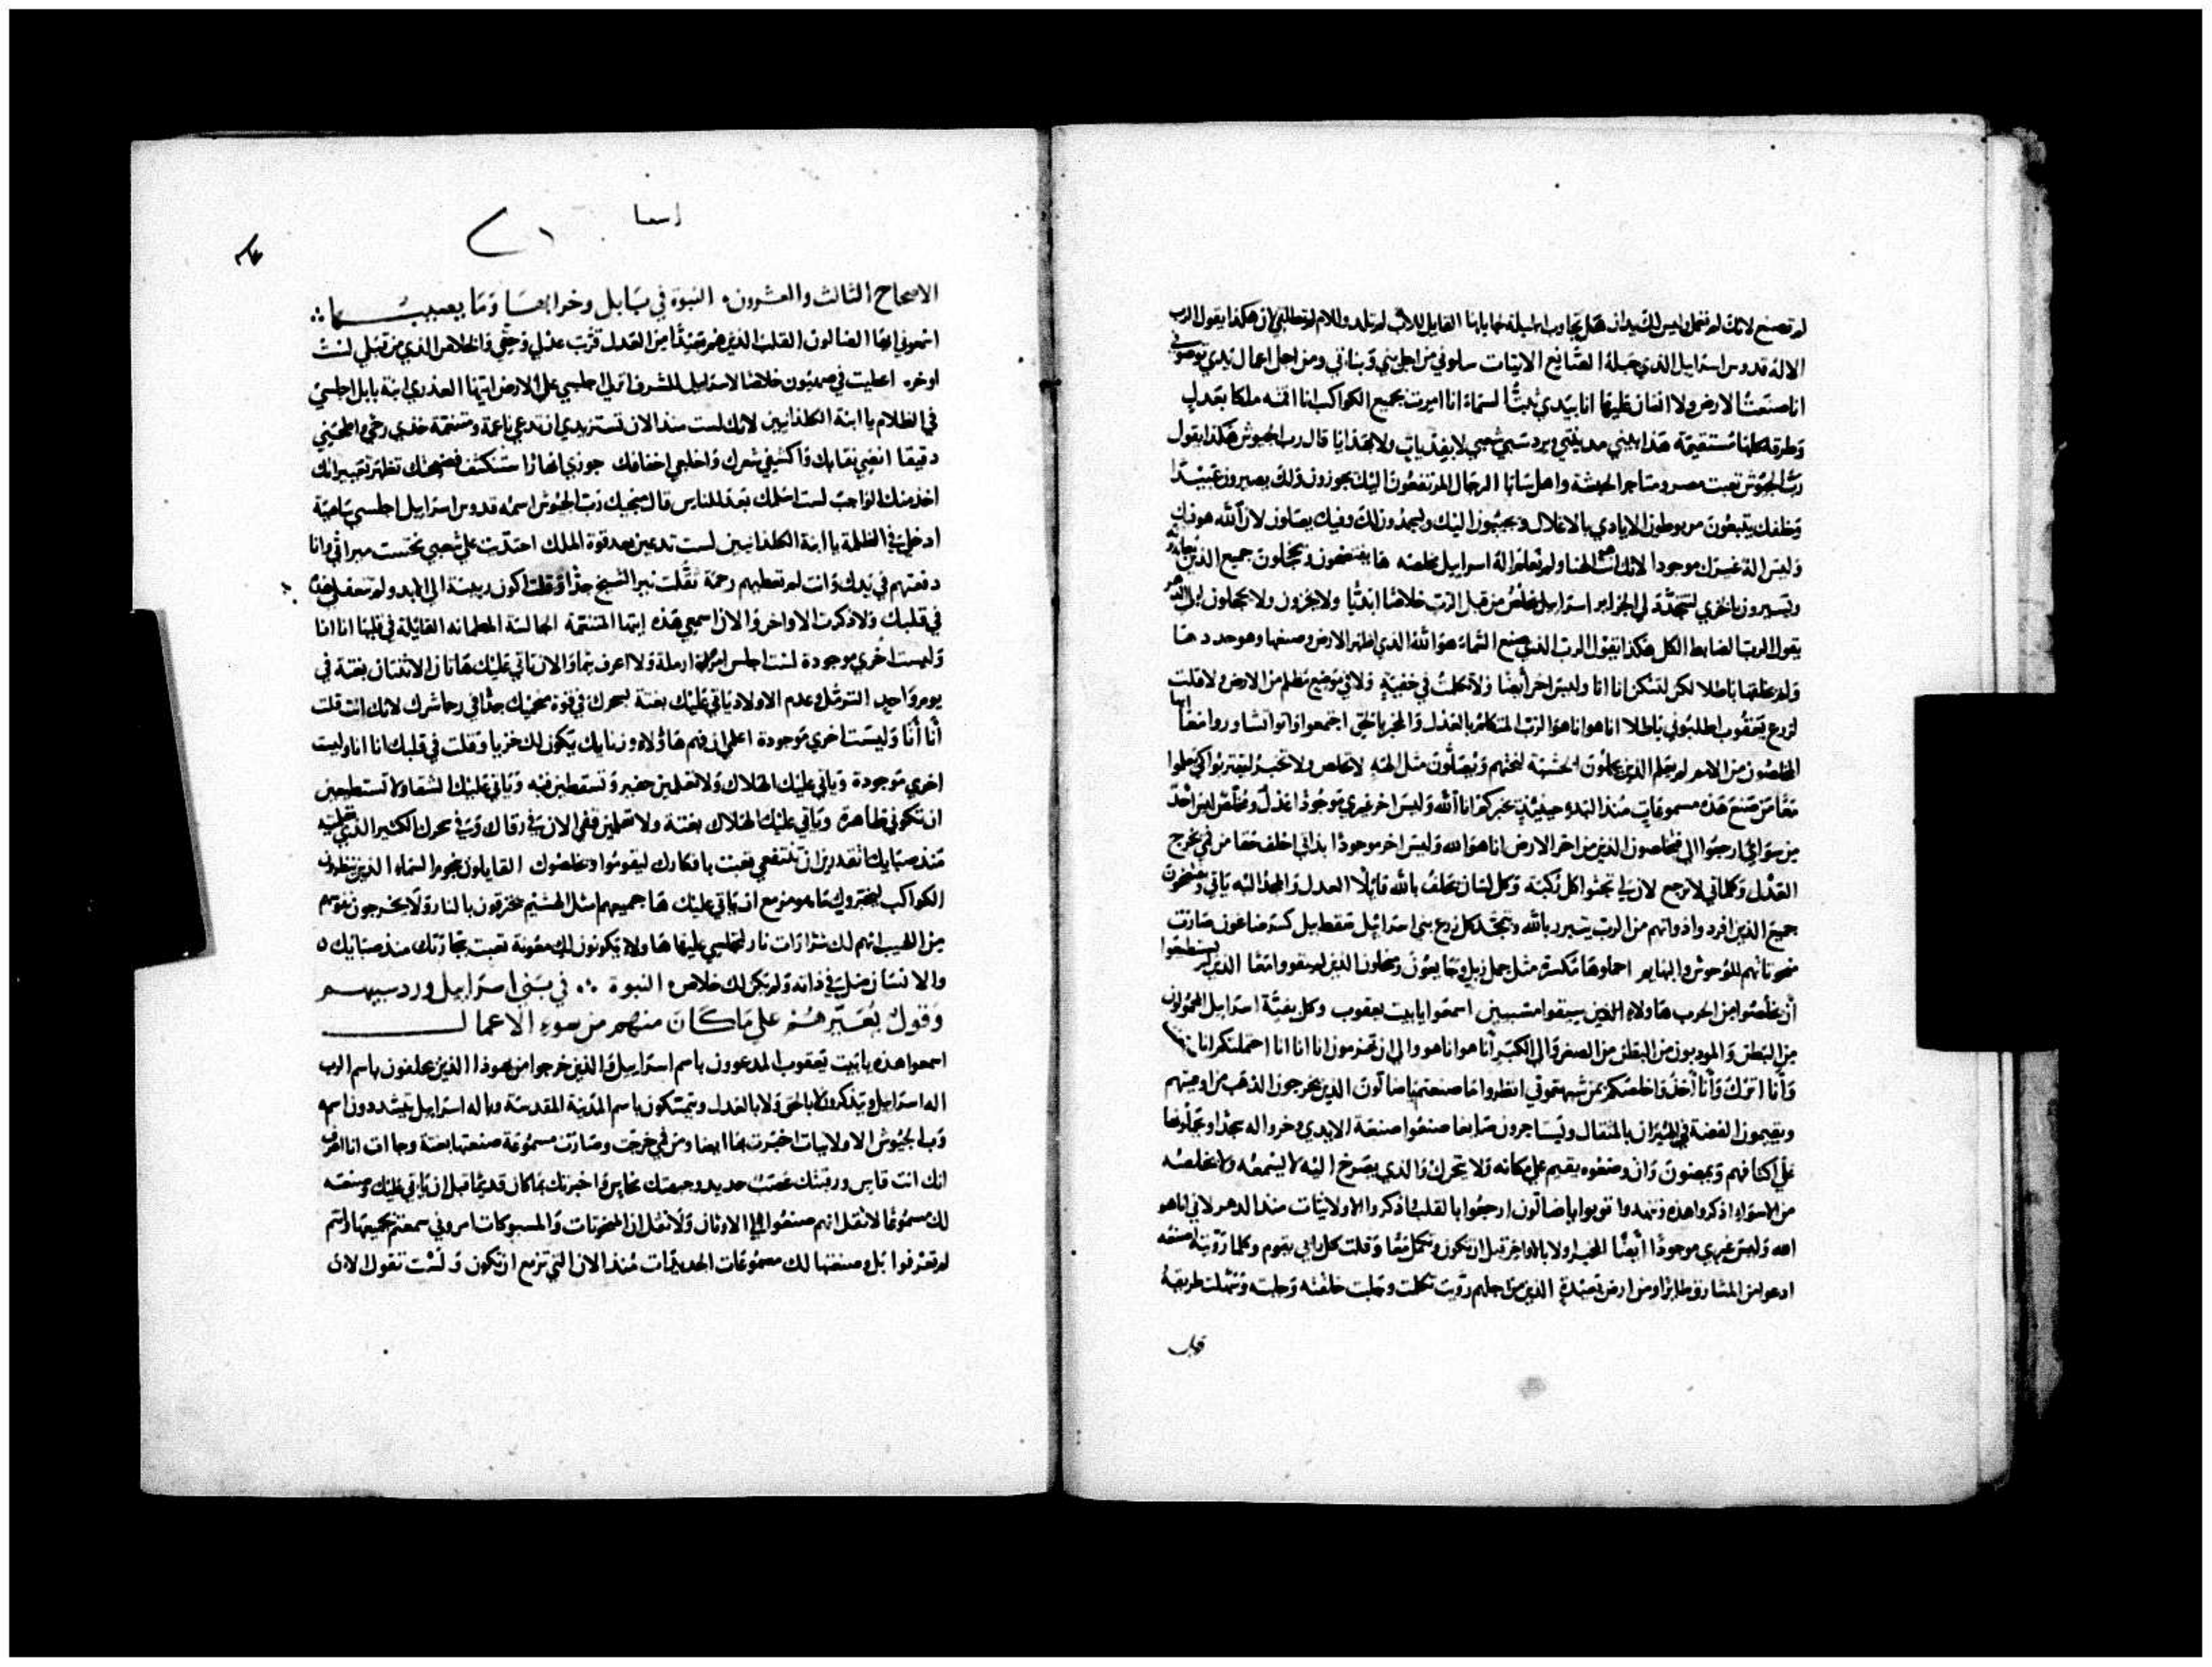 لم تصنع لانك لم تعمل وليس لك يدان هل يجاوب الجبلة خبابها القايل للاب لم تلد وللام لم تطلقي لان هكذا يقول الرب
الاله قدوس اسراييل الذي جبله الصانع الاتيات سلوني من اجل بني وبناتي ومن اجل اعمال يدي توصوني
انا صنعت الارض والانسان عليها انا بيدي ثبت السماء انا امرت بجميع الكواكب انا اقمته ملكا بعدل
وطرقه كلها مستقيمة هذا يبني مدينتي ويرد سبي شعبي لا بفديات ولا بهدايا قال رب الجيوش هكذا يقول
رب الجيوش تعبت مصر ومتاجر الحبشة واهل سابا الرجال المرتفعون اليك يجوزون ولك يصيرون عبيدا
وخلفك يتبعون مربوطون الايادي بالاغلال ويجيون اليك ويسجدون لك وفيك يصلون لان الله هو فيك
وليس اله غيرك موجودا لانك انت هو الهنا ولم نعلم اله اسراييل مخلصه ها يفتضحون ويخجلون جميع الذين
ويسيرون بالخزي لتتجدد لي الجزاير اسراييل يخلص من قبل الرب خلاصا ابديا ولا يخزون ولا يخجلون الى الدهر
يقول الرب الضابط الكل هكذا يقول الرب الذي صنع السماء هو الله الذي اظهر الارض وصنعها وهو حددها
ولم يجعلها باطلا لكن لتسكن انا انا وليس اخر ايضا ولا تكلمت في خفية ولا في موضع مظلم من الارض ولا قلت
لزرع يعقوب اطلبوني باطلا انا هو انا هو الرب المتكلم بالعدل والمخبر بالحق اجتمعوا واتوا تشاوروا معا ايها
المخلصون من الامم لم يعلم الذين يحملون الخشبة لنحتهم ويصلون مثل الهه لا تخلص ولا تخبر ليقتربوا لكي يعلموا
معا من صنع هذه مسموعات منذ البدء حينيذ يخبركم انا الله وليس اخر غيري موجودا عدل ومخلص ليس احد
من سوائي ارجعوا الي فتخلصون الذين من اخر الارض انا هو الله وليس اخر موجودا بذاتي احلف حقا من فمي يخرج
العدل وكلماتي لا ترجع لان لي تجثوا كل ركبة وكل لسان يحلف بالله قايلا العدل والمجد اليه ياتي ويفتضحون
جميع الذين افردوا ذواتهم من الرب يتبرر بالله ويتمجد كل زرع بني اسراييل سقط بيل كسر ضاعون صارت
منحوتاتهم للوحوش والبهايم احملوها مكسرة مثل حمل ذيل وجايعون ومحلون الذين لم يقووا معا الذين لم يستطيعوا
أن يخلصوا من الحرب هاولاء الذين سيقوا متسبيين اسمعوا يا بيت يعقوب وكل بقية اسراييل المحمولون
من البطن والمودبون من البطن من الصغر والى الكبر انا هو انا هو والى ان تهرموا انا انا انا احتملتكم انا
وانا اترك وانا آخذ واخلصكم بمن شبهتموني انظروا ما صنعتم يا ضالون الذين يخرجون الذهب من اوعيتهم
ويقيمون الفضة في الميزان بالمثقال ويستاجرون صايغا صنعوا صنعة الايدي وخروا له سجدا ويحملوها
على اكتافهم ويمضون وان وضعوه يقيم على مكانه ولا يتحرك والذي يصرخ اليه لا يسمعه ولا يخلصه
من الاسواء اذكروا هذه وتنهدوا توبوا يا ضالون ارجعوا بالقلب واذكروا الاولانيات منذ الدهر لاني انا هو
الله وليس غيري موجودا ايضا المخبر اولا بالاواخر قبل ان تكون وتكمل معا وقلت كل رايي يقوم وكلما رويته اصنعه
ادعوا من المشارق طايرا ومن ارض بعيدة الذين من اجلهم رويت تكلمت وجلبت خلقته وجلبته وسهلت طريقه
اسعيا
الاصحاح الثالث والعشرون النبوة في بابل وخرابها وما يصيبها
اسمعوني ايها الضالون القلب الذين هم بعيدا من العدل قربت عدلي وحقي والخلاص الذي من قبلي لست
اوخره اعطيت في صهيون خلاصا لاسراييل للشرف انزلي اجلسي على الارض ايتها العذري ابنة بابل اجلسي
في الظلام يا ابنة الكلدانيين لانك لست منذ الان تستزيدي ان تدعي ناعمة ومتنعمة خذي رحي واطحني
دقيقا انضي نقابك واكشفي شعرك واخلعي اخفافك جوزي انهارا ستكشف فضيحتك تظهر تعييراتك
اخذ منك الواجب لست اسلمك بعد للناس قال منجيك رب الجيوش اسمه قدوس اسراييل اجلسي ساهية
ادخلي في الظلمة يا ابنة الكلدانيين لست تدعين بعد قوة الملك احتديت على شعبي نجست ميراثي وانا
دفعتهم في يدك وانت لم تعطيهم رحمة ثقلت نير الشيخ جدا وقلت اكون رييسة الى الابد ولم تعقلي هذه
في قلبك ولا ذكرت الاواخر والان اسمعي هذه ايتها المتنعمة الجالسة المطمانه القايلة في قلبها انا انا
وليست اخرى موجودة لست اجلس امراة ارملة ولا اعرف يتما والان تاتي عليك هاتان الاثنتان بغتة في
يوم واحد الترمل وعدم الاولاد ياتي عليك بغتة بسحرك في قوة سحرك جدا في رجا شرك لانك انت قلت
أنا أنا وليست اخري موجودة اعلمي ان فهم هاولاء وزنايك يكون لك خزيا وقلت في قلبك انا انا وليست
اخري موجودة وياتي عليك الهلاك ولا تعلمين حفيرة وتسقطين فيه وياتي عليك الشقا ولا تستطيعين
ان تكوني طاهرة وياتي عليك الهلاك بغتة ولا تعلمين قفي الان في رقاك وفي سحرك الكثير الذي تعلمتيه
منذ صبايك ان تقدرين ان تنتفعي تعبت بافكارك ليقوموا ويخلصوك القايلون نجوم السماء الذين ينظرون
الكواكب ليخبروك ما هو مزمع ان ياتي عليك ها جميعهم مثل الهشيم يحترقون بالنار ولا يخرجون نفوسهم
من اللهيب انهم لك شرارات نار لتجلسي عليها ها ولاء يكونون لك معونة تعبت بتجارتك منذ صبائيك
والانسان ضل في ذاته ولم يكن لك خلاص النبوة في بني اسراييل ورد سبيهم
وقول يعيرهم على ما كان منهم من سوء الاعمال
اسمعوا هذه يا بيت يعقوب المدعوون باسم اسراييل والذين خرجوا من يهوذا الذين يحلفون باسم الرب
اله اسراييل ويذكرون لا بالحق ولا بالعدل ويتمسكون باسم المدينة المقدسة وباله اسراييل يتشددون اسمه
رب الجيوش الاولانيات اخبرت بها ايضا ومن في خرجت وصارت مسموعة صنعتها بغتة وجاات انا اعرف
انك انت قاس ورقبتك عصب حديد وجبهتك نحاس واخبرتك بما كان قديما قبل ان ياتي عليك وصنعته
لك مسموعا لا تقل انهم صنعوا لي الاوثان ولا تقل ان المنحوتات والمسبوكات امروني سمعتم بجميعها وانتم
لم تعرفوا بل وصنعتها لك مسموعات الجديدات منذ الان التي تزمع ان تكون ولست تقول لان